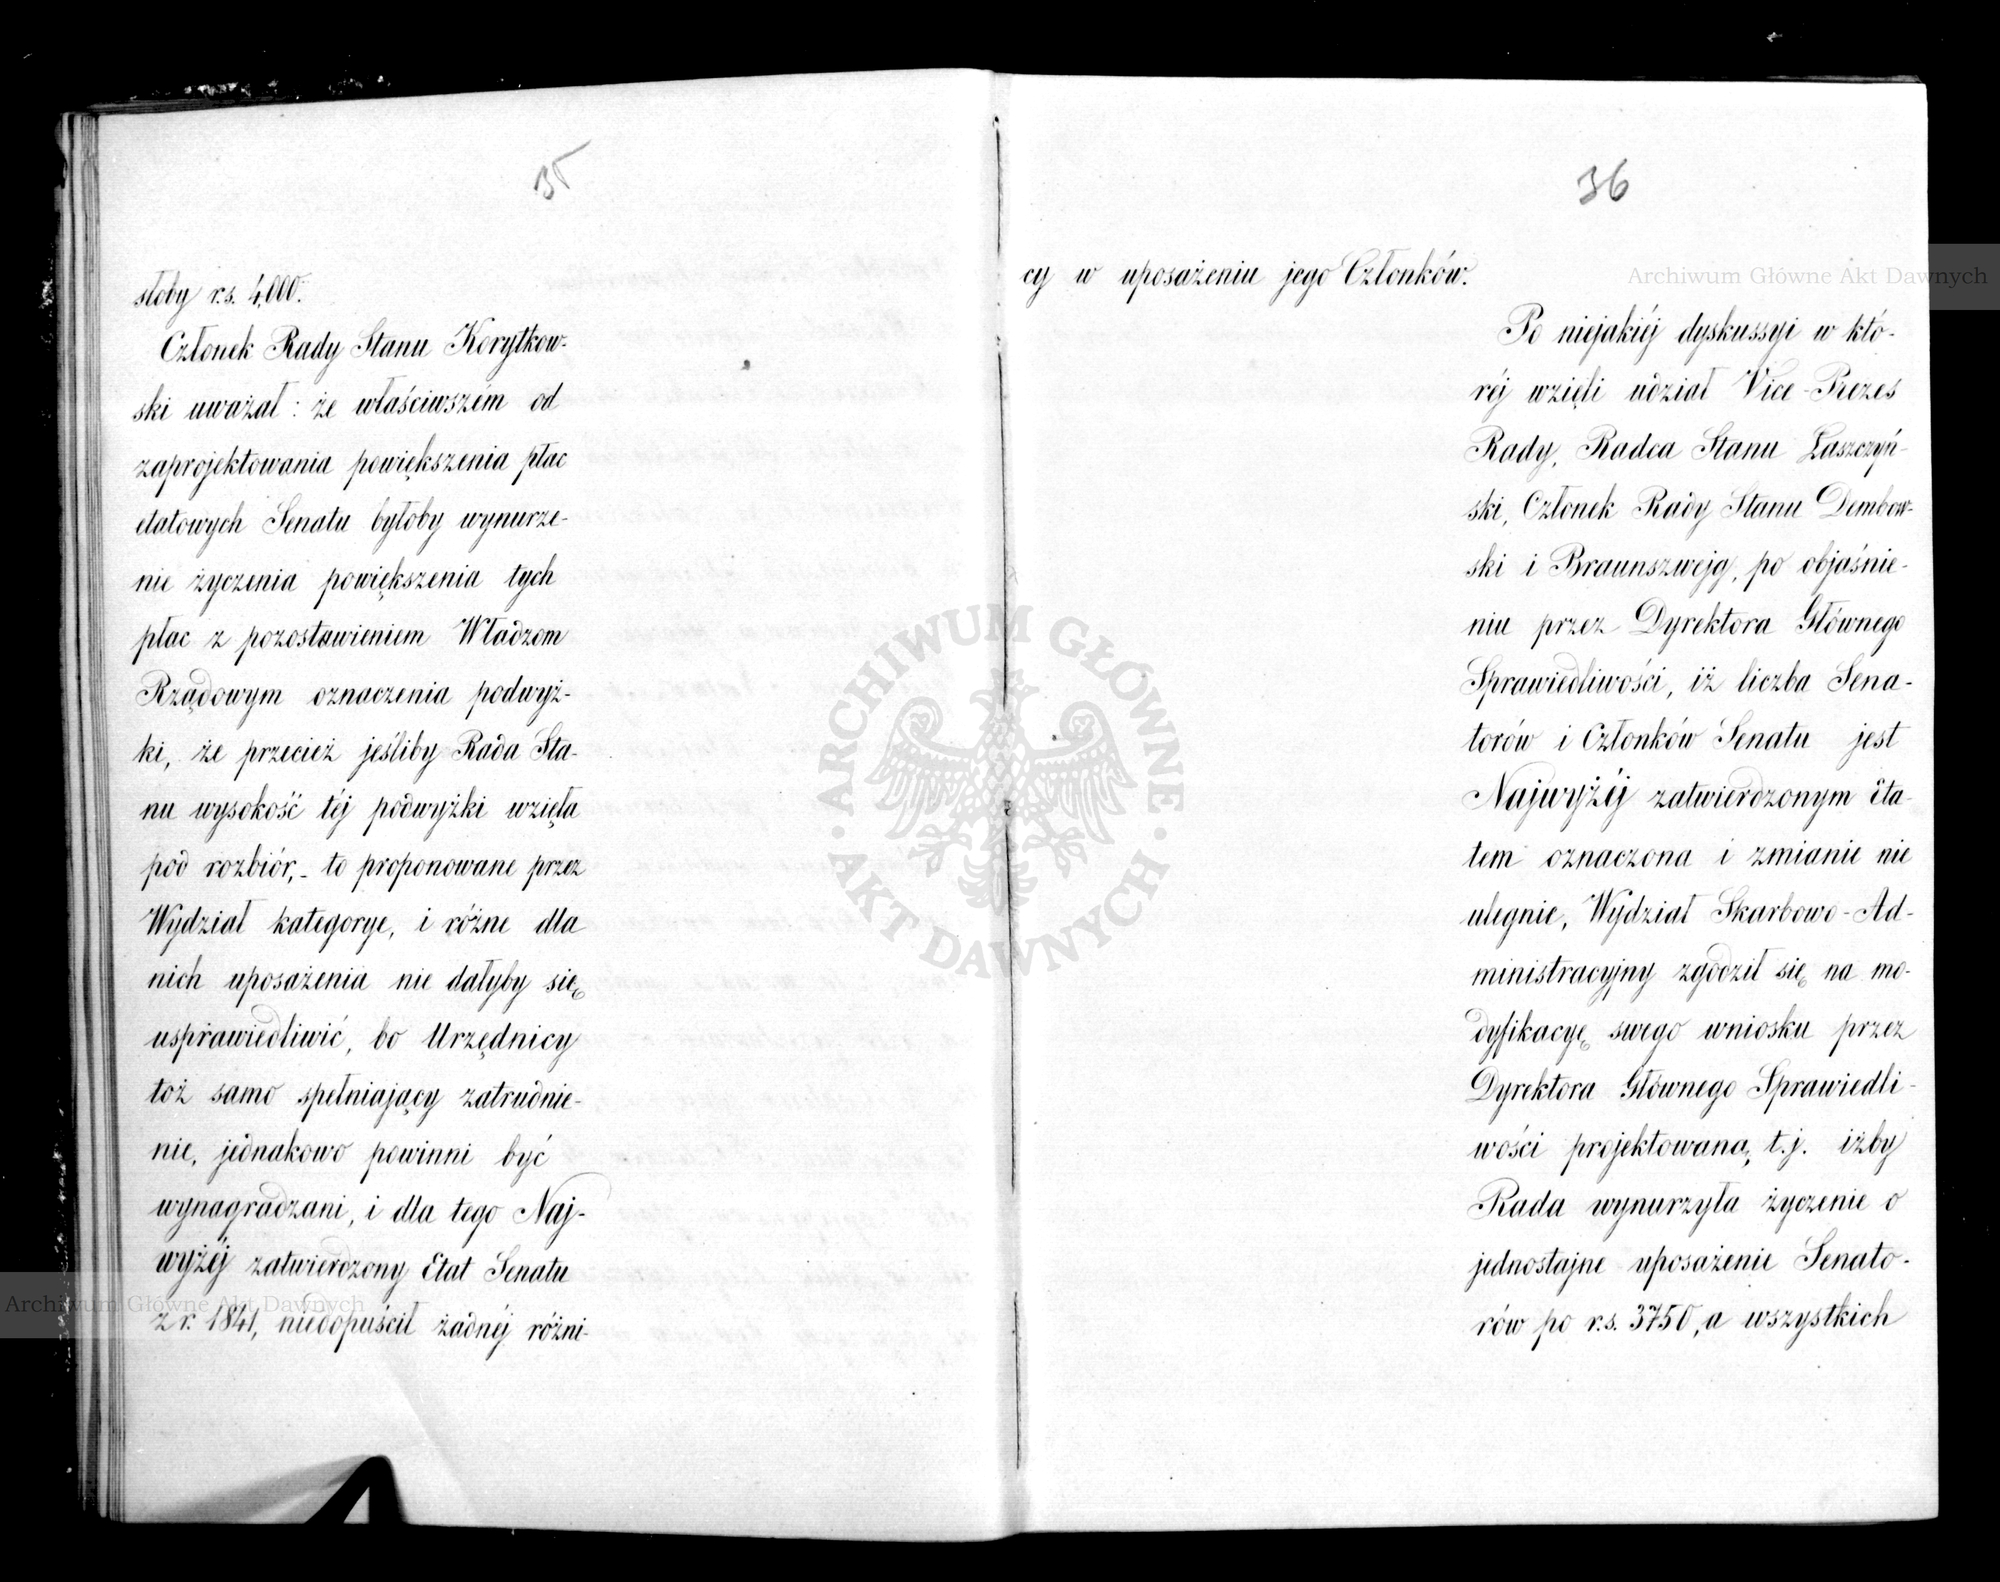 35
słoby r.s. 4,000.
Członek Rady Stanu Korytkow-
ski uważał: że właściwszém od
zaprojektowania powiększenia płac
etatowych Senatu byłoby wynurze-
nie życzenia powiększenia tych
płac z pozostawieniem Władzom
Rządowym oznaczenia podwyż-
ki, że przecież jeśliby Rada Sta-
nu wysokość téj podwyżki wzięła
pod rozbiór,- to proponowane przez
Wydział kategorye, i różne dla
nich uposażenia nie dałyby się
usprawiedliwić, bo Urzędnicy
toż samo spełniający zatrudnie-
nie, jednakowo powinni być
wynagradzani, i dla tego Naj-
wyżéj zatwierdzony Etat Senatu
z r. 1841, niedopuścił żadnéj różni-
36
cy w uposażeniu jego Członków.
Po niejakiéj dyskussyi w któ-
réj wzięli udział Vice-Prezes
Rady, Radca Stanu Łaszczyń-
ski, Członek Rady Stanu Dembow-
ski i Braunszwejg, po objaśnie-
niu przez Dyrektora Głównego
Sprawiedliwości, iż liczba Sena-
torów i Członków Senatu jest
Najwyżéj zatwierdzonym Eta-
tem oznaczona i zmianie nie
ulegnie, Wydział Skarbowo-Ad-
ministracyjny zgodził się na mo-
dyfikacyę swego wniosku przez
Dyrektora Głównego Sprawiedli-
wości projektowaną t.j. iżby
Rada wynurzyła życzenie o
jednostajne uposażenie Senato-
rów po r.s. 3750, a wszystkich
Archiwum Główne Akt Dawnych
ARCHIWUM GŁÓWNE AKT DAWNYCH
Archiwum Główne Akt Dawnych